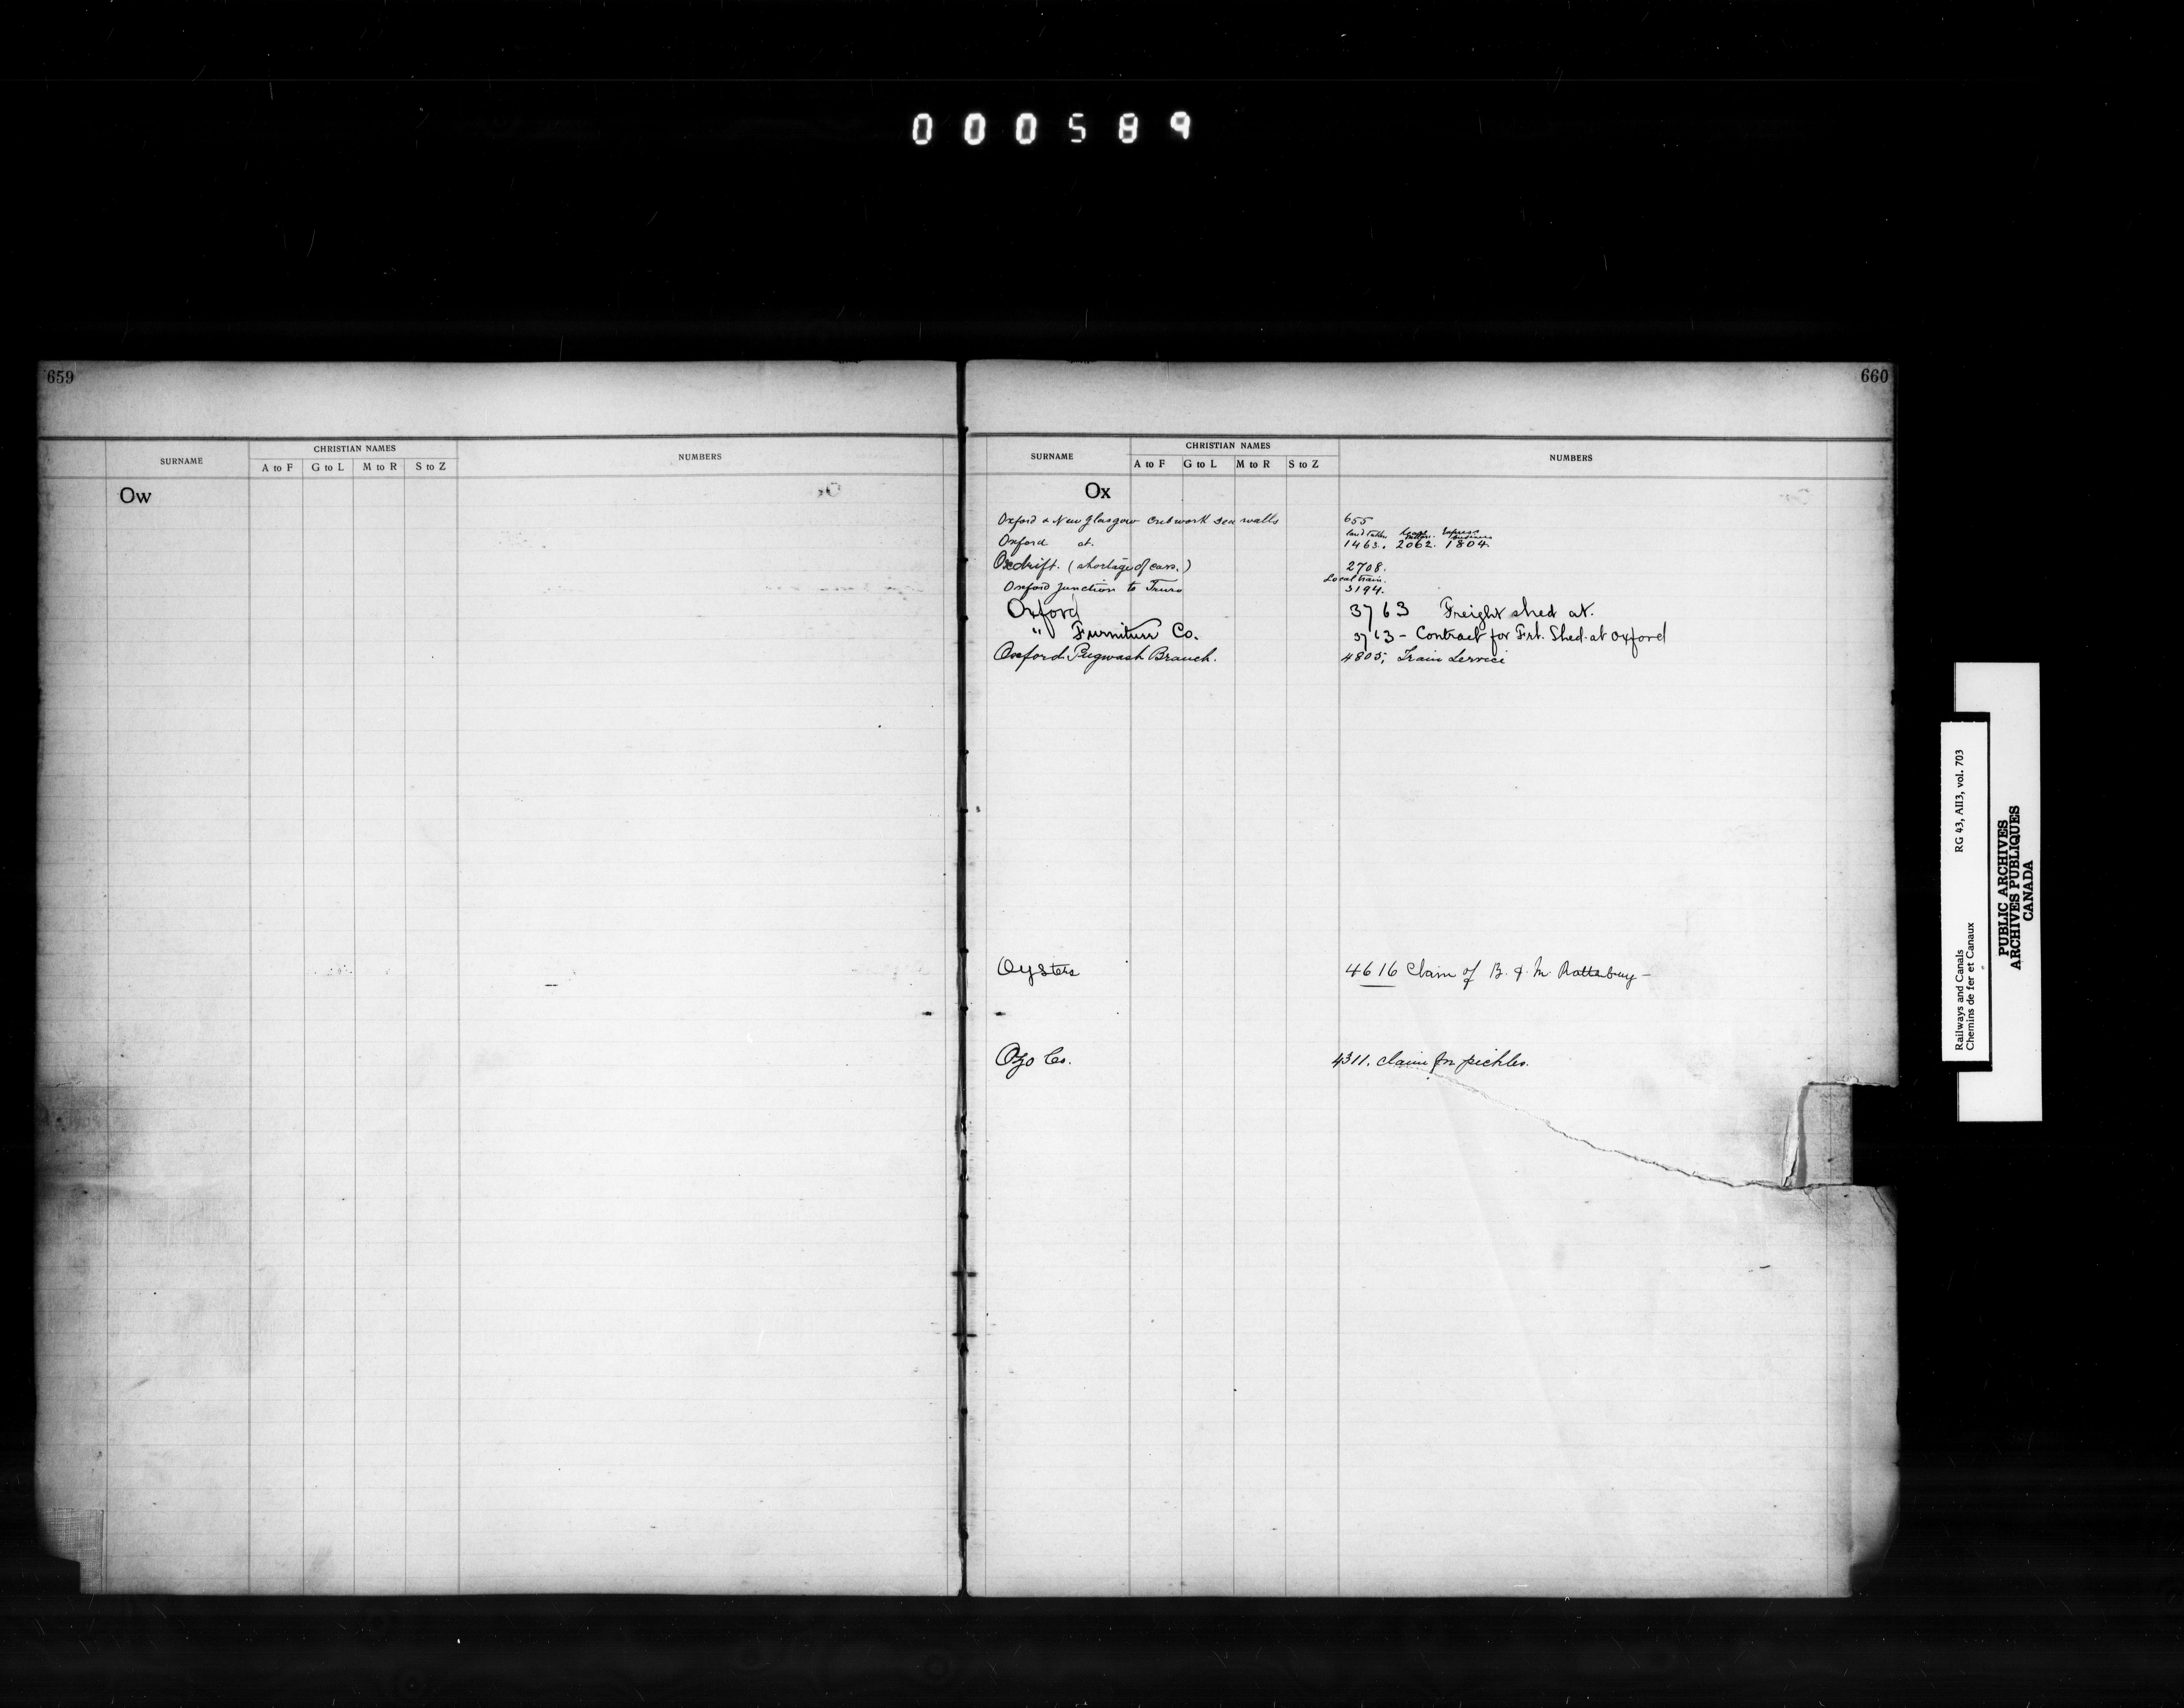 000589
659
SURNAME
CHRISTIAN NAMES
A to F G to L M to R S to Z
NUMBERS
Ow
660
SURNAME
CHRISTIAN NAMES
A to F G to L M to R S to Z
NUMBERS
Ox
Oxford & New Glasgow cribwork sea walls 655
Oxford at. 1463. 2062. 1804.
Oxdrift. (shortage of cars.) 2708.
Local train.
Oxford Junction to Truro 3194.
Oxford 3763 Freight shed at.
" Furniture Co. 3763 - Contract for Frt. Shed at Oxford
Oxford Pugwash Branch. 4805; Train Service
Oysters 4616 Claim of B. & M. Rattenbury -
Ozo Co. 4311. claim for pickles.
Railways and Canals RG 43, AII3, vol. 703
Chemins de fer et Canaux
PUBLIC ARCHIVES
ARCHIVES PUBLIQUES
CANADA